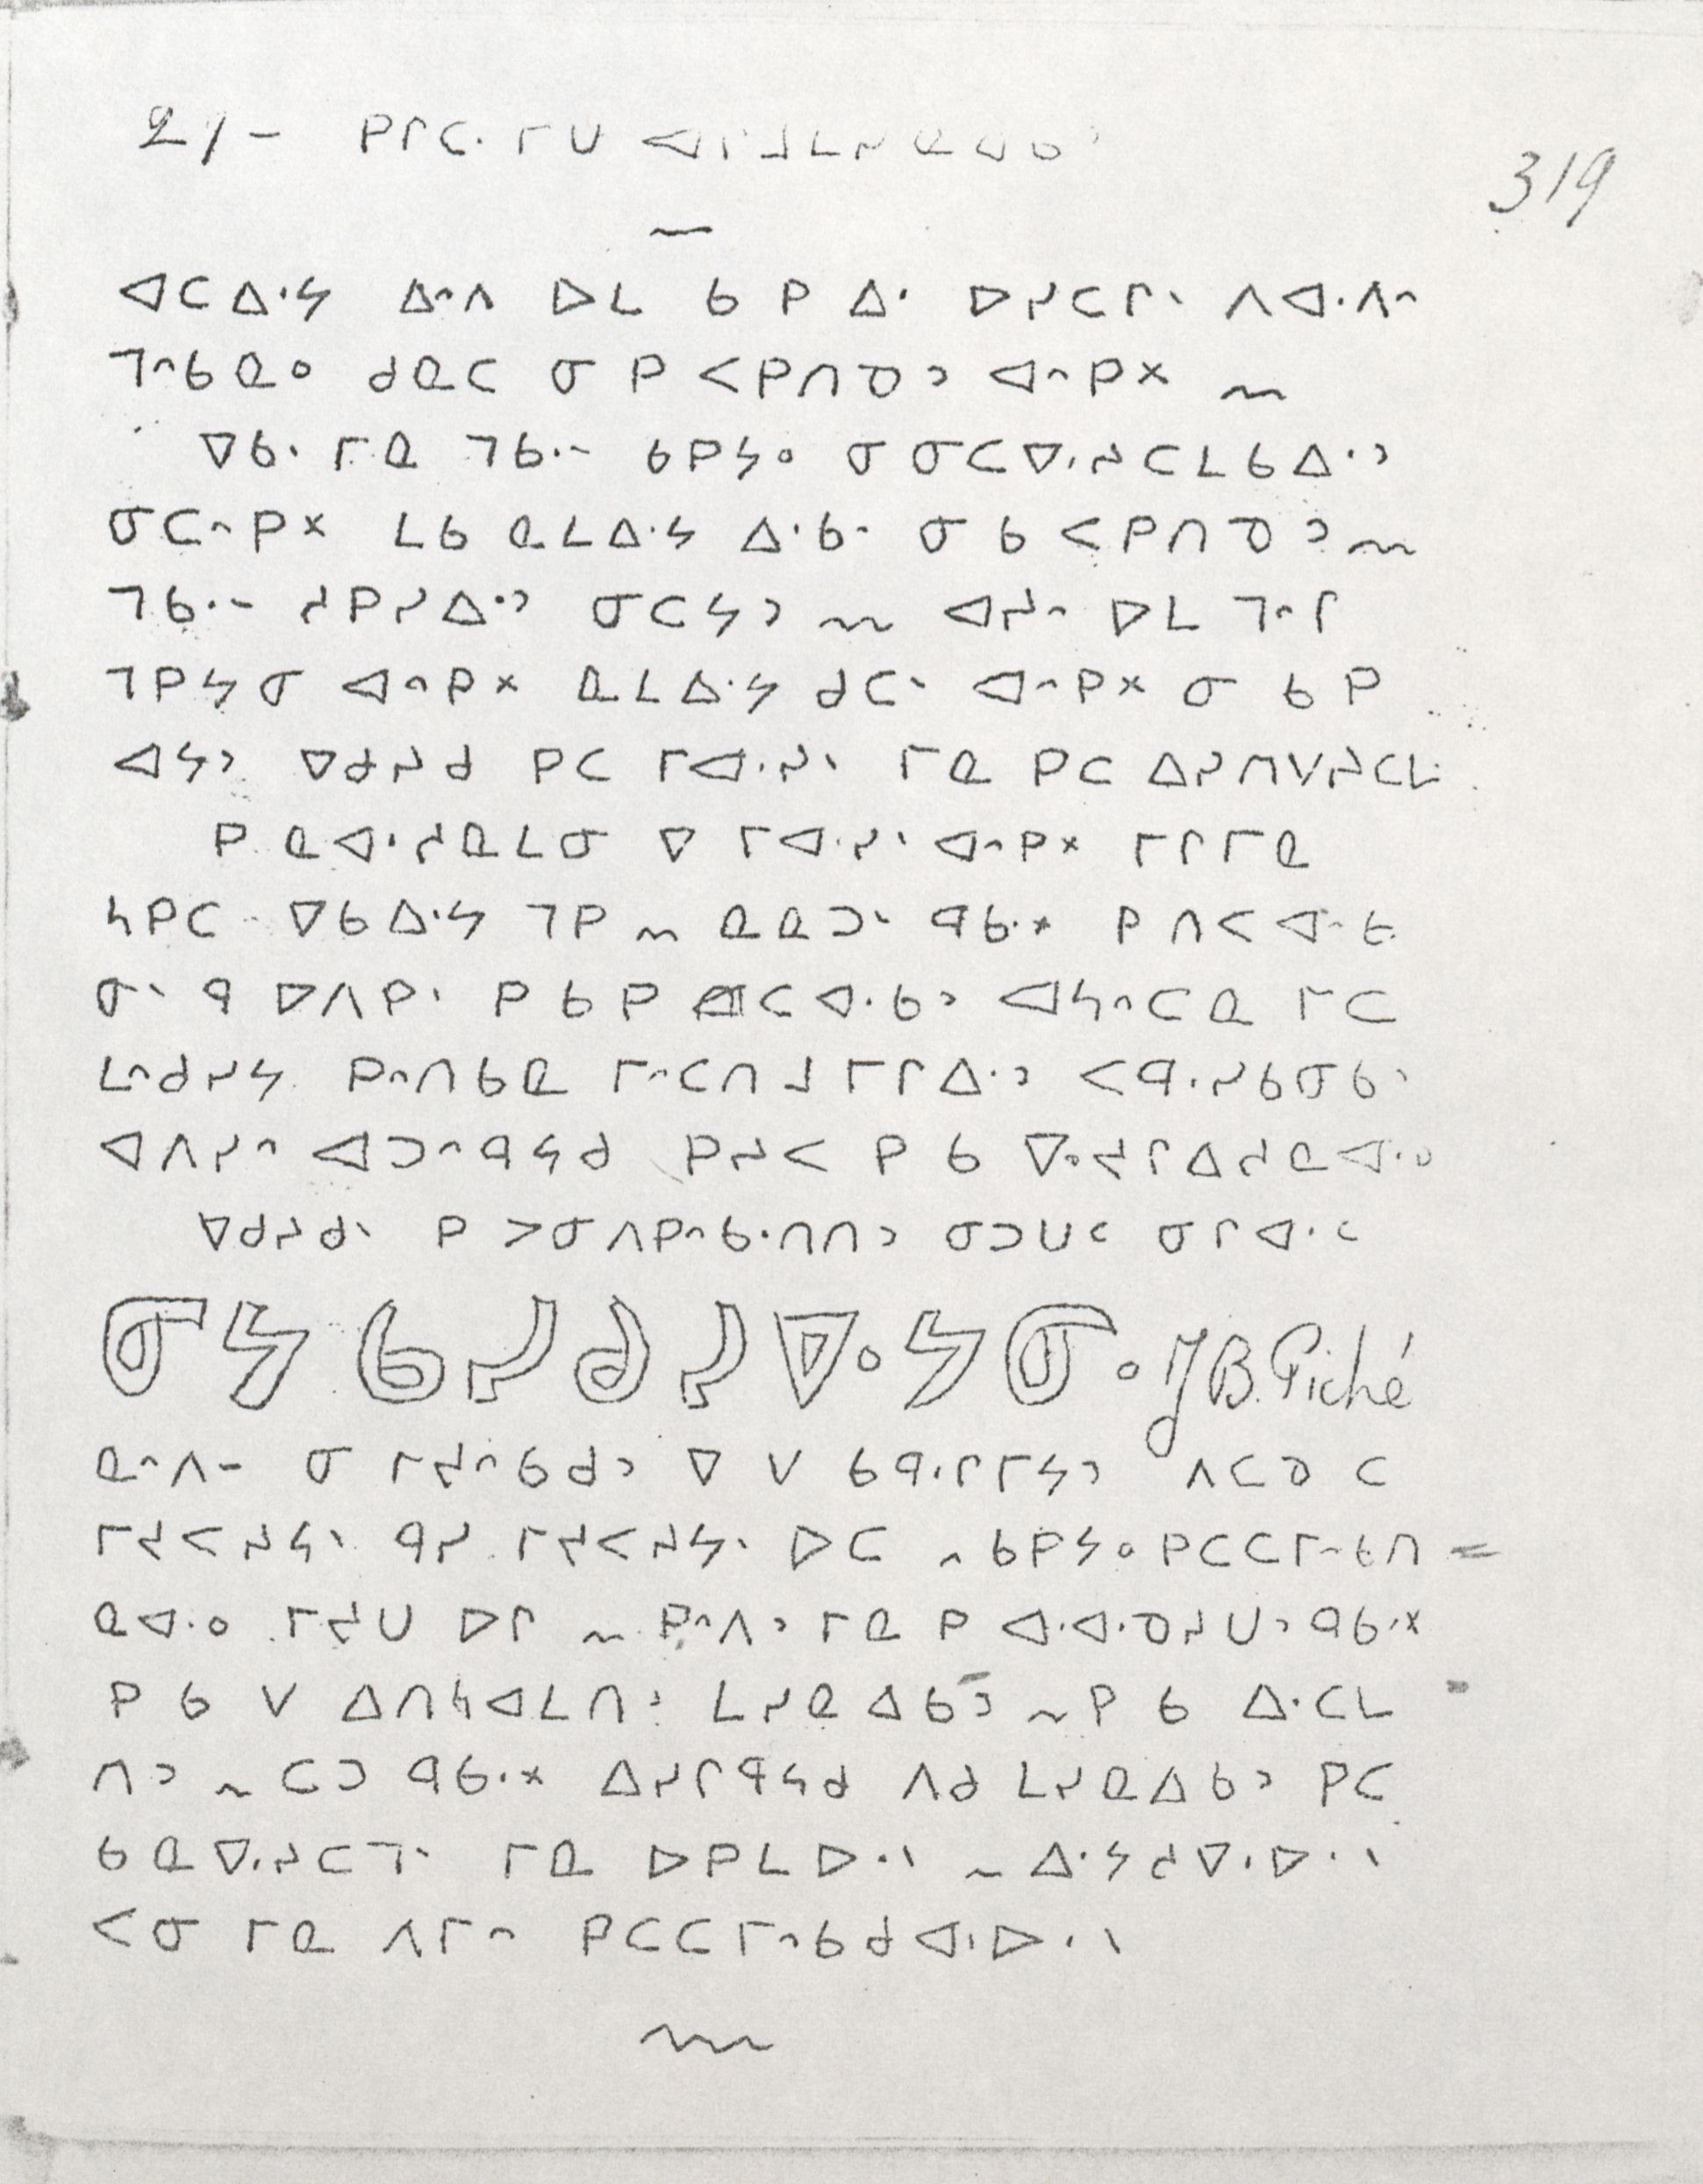 21- ᑭᒋᑕᐧ ᒥᑌ
319
ᐊᑕᐃᐧᔭ ᐃᐢᐱ ᐅᒪ ᑲ ᑭ ᐃᐧ ᐅᓯᑕᒋᐠ ᐱᐊᐧᐱᐢ
ᒣᐢᑲᓇᐤ ᑯᓇᑕ ᓂ ᑭ ᐸᑭᑎᓀᐣ ᐊᐢᑭᕽ ~
ᐁᑲᐧ ᒥᓇ ᒣᑲᐧᐨ ᑲᑭᔭᐤ ᓂ ᓂᑕᐁᐧᔨᑕᒪᑲᐃᐧᐣ
ᓂᑕᐢᑭᕽ ᒪᑲ ᓇᒪᐃᐧᔭ ᐃᐧᑲᐨ ᓂ ᑲ ᐸᑭᑎᓀᐣ ~
ᒣᑲᐧᐨ ᓴᑭᓯᐃᐧᐣ ᓂᑕᔭᐣ ~ ᐊᔨᐢ ᐅᒪ ᒣᐢᒋ
ᒣᑭᔭᓂ ᐊᐢᑭᕽ ᓇᒪᐃᐧᔭ ᑯᑕᐠ ᐊᐢᑭᕽ ᓂ ᑲ ᑭ
ᐊᔭᐣ ᐁᑯᔨᑯ ᑭᑕ ᒥᐊᐧᓯᐣ ᒥᓇ ᑭᑕ ᐃᓯᑎᐯᔨᑕᒪ
ᑭ ᓇᐊᐧᓴᓇᒪᓂ ᐁ ᒥᐊᐧᓯᐠ ᐊᐢᑭᕽ ᒥᒋᒥᓇ
ᓴᑭᑕ ᐁᑲᐃᐧᔭ ᒣᑭ ~ ᓇᓇᑐᐠ ᑫᑲᐧᕽ ᑭ ᑎᐸᐊᐢᑲ
ᓂᐠ ᑫ ᐅᐱᑭᐠ ᑭ ᑲ ᑭ ᑕᐊᐧᑲᐣ ᐊᓴᐢᑕᓇ ᒥᑕ
ᒪᐢᑯᓯᔭ ᑭᐢᑎᑲᓇ ᒥᐢᑕᑎᒧ ᒥᒋᐃᐧᐣ ᐸᑫᐧᓯᑲᓂᑲᐣ
ᐊᐱᓯᐢ ᐊᑐᐢᑫᔭᑯ ᑭᔨᐸ ᑭ ᑲ ᐁᐧᔪᒋᐃᓱᓇᐊᐧᐤ
ᐁᑯᔨᑯᐠ ᑭ ᐳᓂᐱᑭᐢᑲᐧᑎᑎᐣ ᓂᑐᑌᑦ ᓂᒋᐊᐧᑦ
ᓂᔭ ᑲᓯᑯᓯᐁᐧᔭᓂᐤ J B. Piché
ᓇᐢᐱᐨ ᓂ ᒥᔪᐢᑲᑯᐣ ᐁ ᐯ ᑲᑫᐧᒋᒥᔭᐣ ᐱᑕᓄ ᑕ
ᒥᔪᐸᔨᔭᐠ ᑫᓯ ᒥᔪᐸᔨᔭᐠ ᐅᑕ ~ ᑲᑭᔭᐤ ᑭᑕᑕᒥᐢᑲᑎ =
ᓇᐊᐧᐤ ᒥᔪᑌ ᐅᒋ ~ ᑭᐢᐱᐣ ᒥᓇ ᑭ ᐊᐧᐊᐧᓀᔨᑌᐣ ᑫᑲᐧᕽ
ᑭ ᑲ ᐯ ᐃᑎᓴᐊᒪᑎᐣ ᒪᓯᓇᐃᑲᐣ ~ ᑭ ᑲ ᐃᐧᑕᒪ
ᑎᐣ ~ ᑕᑐ ᑫᑲᐧᕽ ᐃᓯᒋᑫᔭᑯ ᐱᑯ ᒪᓯᓇᐃᑲᐣ ᑭᑕ
ᑲᓇᐁᐧᔨᑕᒣᐠ ᒥᓇ ᐅᑭᒪᐅᐧᐠ ~ ᐃᐧᔭᓱᐁᐧᐅᐧᐠ
ᐸᓂ ᒥᓇ ᐱᒥᐢ ᑭᑕᑕᒥᐢᑲᑯᐊᐧᐅᐧᐠ